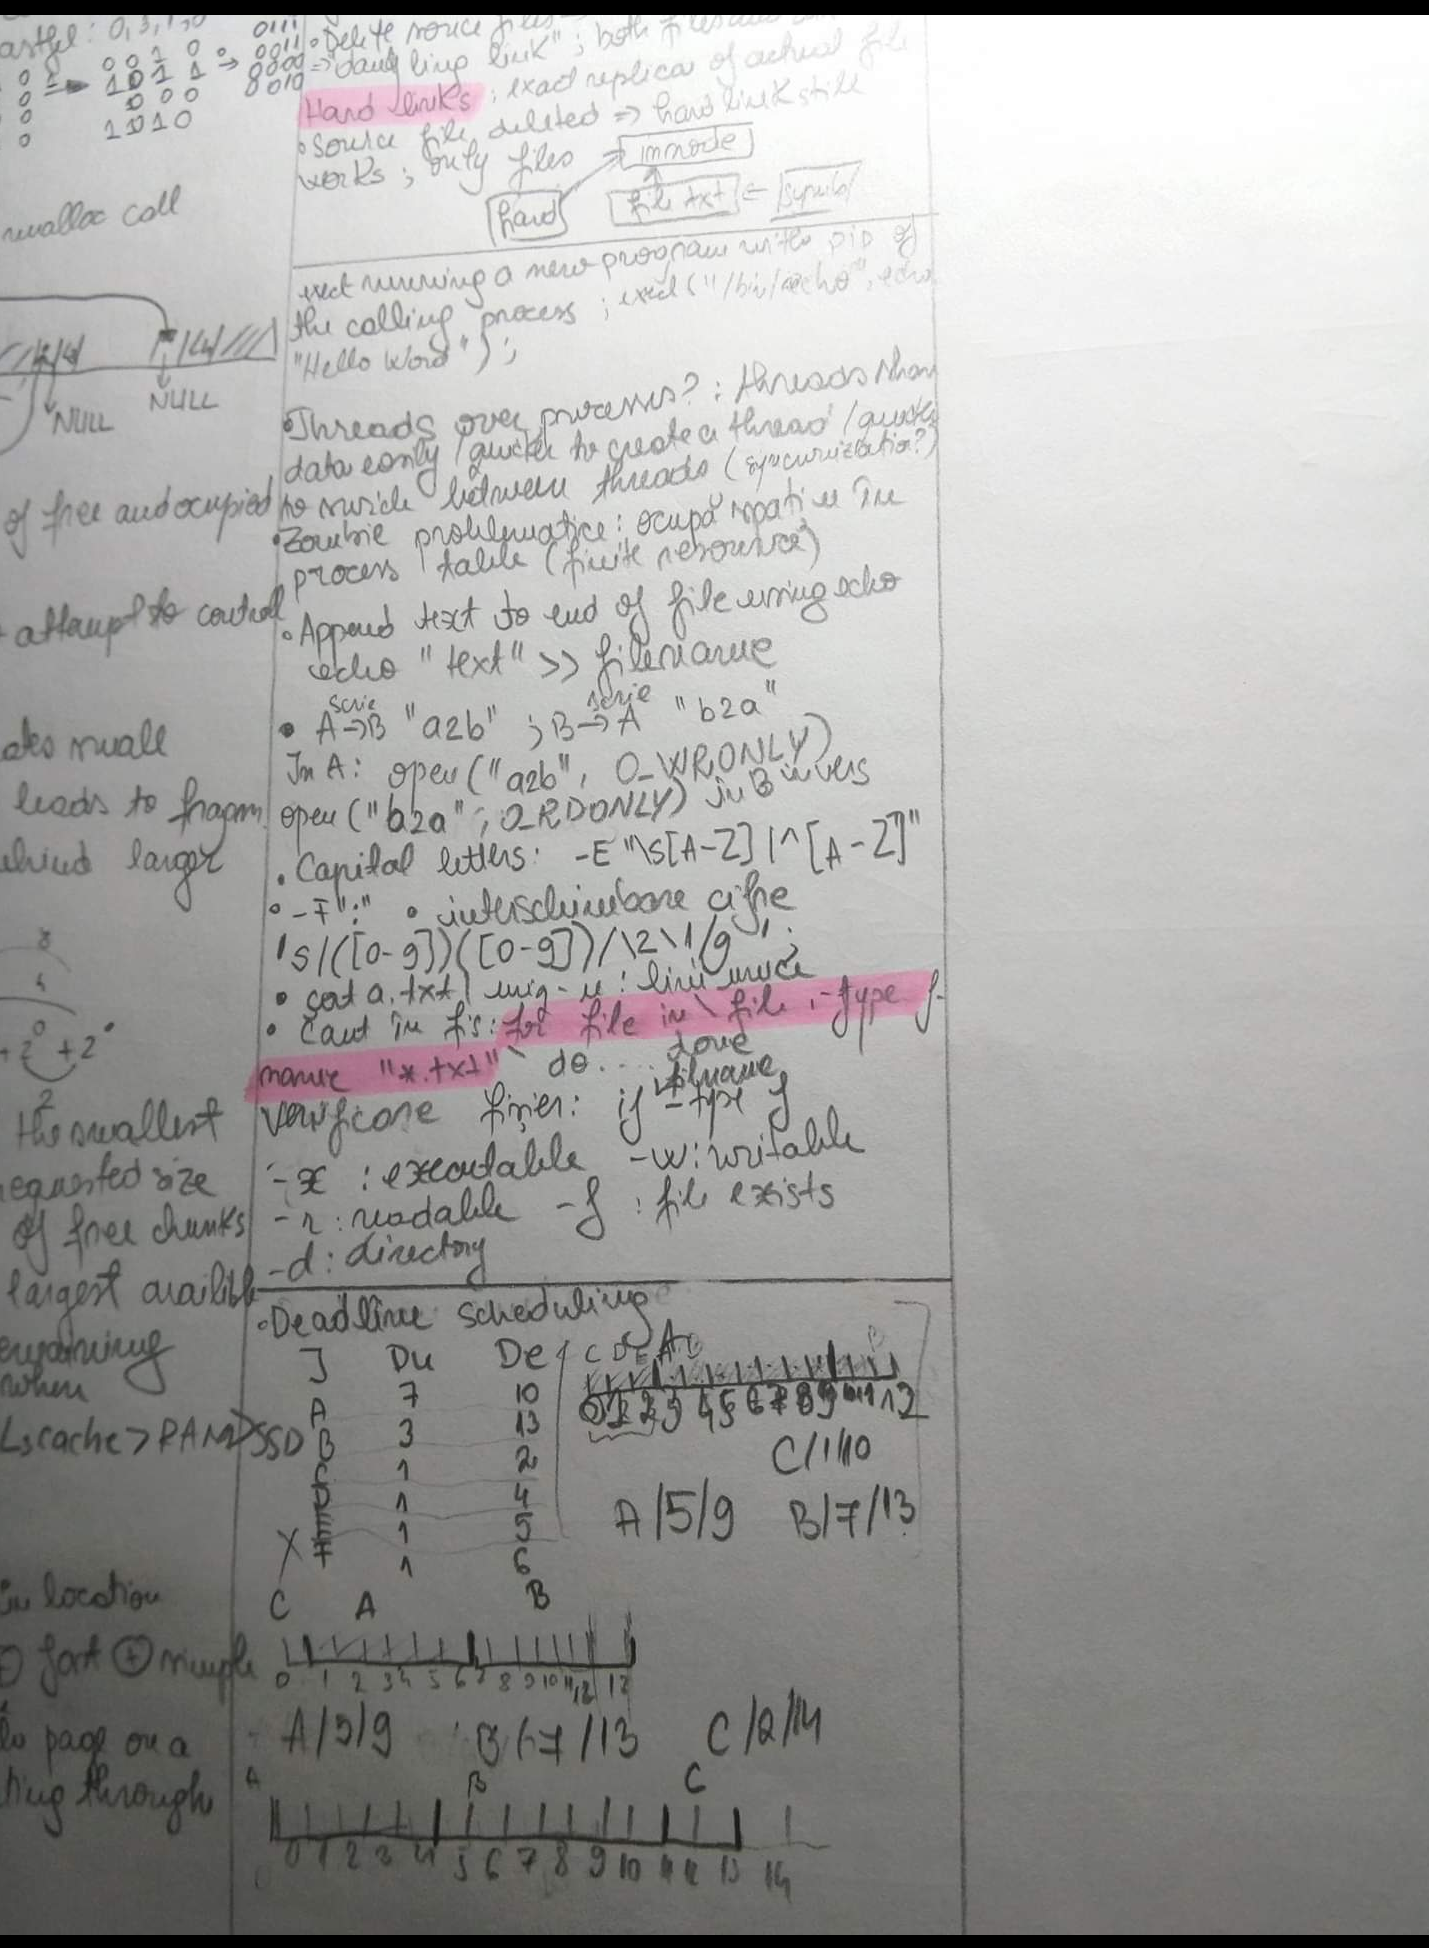 0, 3, 1, 0
0111
0 0 1 0
0011
1 0 1 1
0000
0010
0 0 0
1010
malloc call
NULL
NULL
of free and occupied
attempt to control
small
leads to fragm.
behind larger
8
4
0
+2 +2
2
the smallest
requested size
of free chunks
largest availible
remaining
when
L3cache>RAM>SSD
in location
fast + simple
to page on a
ting through
• Delete source files
=> "dangling link"; both files
Hard links: exact replica of actual file
• Source file deleted => hard link still
works; only files
innode
hard
file txt
symb
exect running a new program with pid of
the calling process; execl("/bin/echo", echo
"Hello Word");
• Threads over processes?: threads shar
data easily / quicker to create a thread / quicker
to swich between threads (syncronization?)
• Zombie problematice: ocupă spații în
process table (finite resource)
• Append text to end of file using echo
echo "text" >> filename
scrie scrie
• A->B "a2b"; B->A "b2a"
In A: open("a2b", O_WRONLY)
open("b2a", O_RDONLY) în B invers
• Capital letters: -E "\s[A-Z]|^[A-Z]"
• -F":" • interschimbare cifre
's/([0-9])([0-9])/\2\1/g';
• sort a.txt | uniq -u : linii unice
• Caut în fis: for file in \ file . -type f -
name "*.txt"` do.... done
filename
verificare fișier: if -type f
-x : executable -w: writable
-r: readable -f : file exists
-d: directory
• Deadline scheduling
J Du De
A 7 10
B 3 13
C 1 2
D 1 4
E 1 5
X F 1 6
C D E A B
0 1 2 3 4 5 6 7 8 9 10 11 12
C/1/10
A/5/9 B/7/13
C A B
0 1 2 3 4 5 6 7 8 9 10 11 12 13
A/5/9 B/7/13 C/2/14
A B C
0 1 2 3 4 5 6 7 8 9 10 11 12 13 14